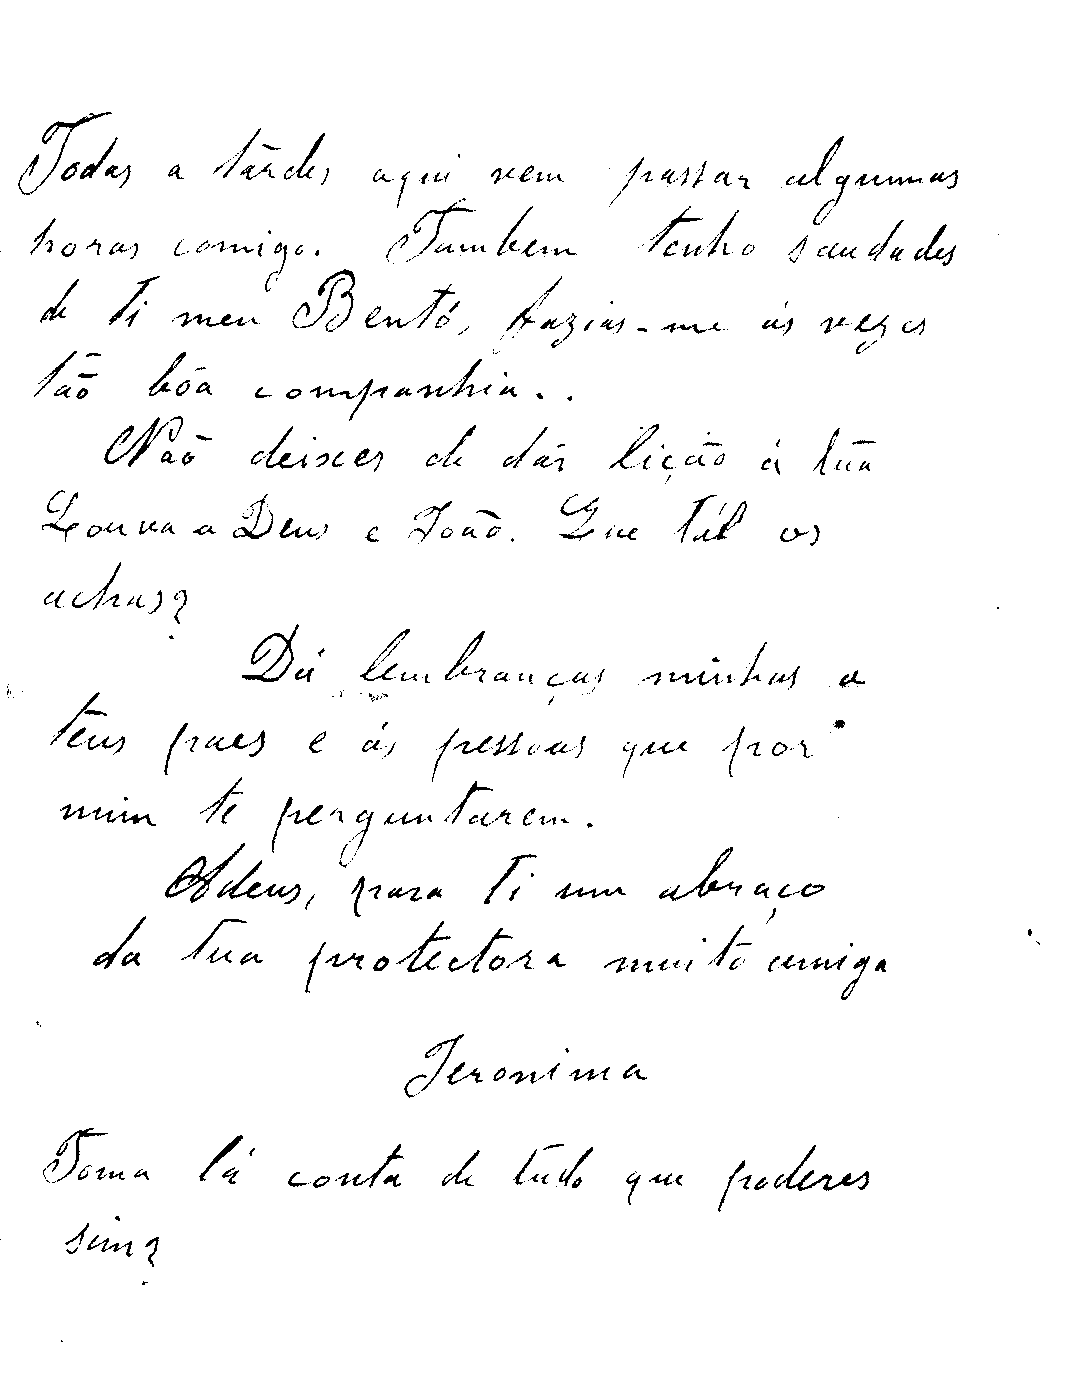 Todas a tardes aqui vem passar algumas
horas comigo. Tambem tenho saudades
de ti meu Bentó, fazias-me ás vezes
tão bôa companhia..
Não deixes de dár lição á tua
Louva a Deus e João. Que tál os
achas?
Dá lembranças minhas a
teus paes e ás pessoas que por
mim te perguntarem.
Adeus, para ti um abraço
da tua protectora muito amiga
Jeronima
Toma lá conta de tudo que poderes
sim?